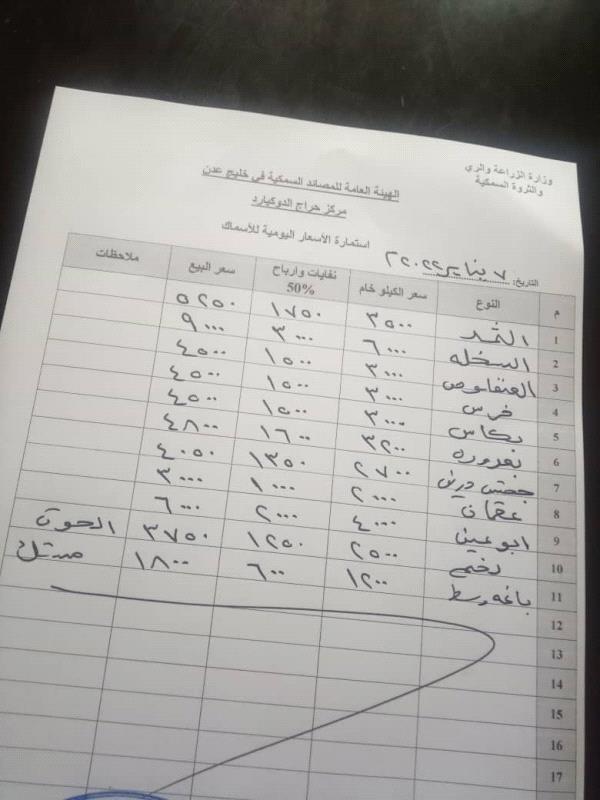 وزارة الزراعة والري
والثروة السمكية
الهيئة العامة للمصائد السمكية في خليج عدن
مركز حراج الدوكيارد
استمارة الأسعار اليومية للأسماك
التاريخ: ٧ يناير ٢٠٢٢
م النوع سعر الكيلو خام نفايات وارباح 50% سعر البيع ملاحظات
1 الثمد ٣٥٠٠ ١٧٥٠ ٥٢٥٠
2 السخله ٦٠٠٠ ٣٠٠٠ ٩٠٠٠
3 العنفلوص ٣٠٠٠ ١٥٠٠ ٤٥٠٠
4 خرس ٣٠٠٠ ١٥٠٠ ٤٥٠٠
5 بكاس ٣٠٠٠ ١٥٠٠ ٤٥٠٠
6 ٣٢٠٠ ١٦٠٠ ٤٨٠٠
7 ٢٧٠٠ ١٣٥٠ ٤٠٥٠
8 ٢٠٠٠ ١٠٠٠ ٣٠٠٠
9 ابو عين ٤٠٠٠ ٢٠٠٠ ٦٠٠٠
10 ٢٥٠٠ ١٢٥٠ ٣٧٥٠
11 باغه وسط ١٢٠٠ ٦٠٠ ١٨٠٠
12
13
14
15
16
17